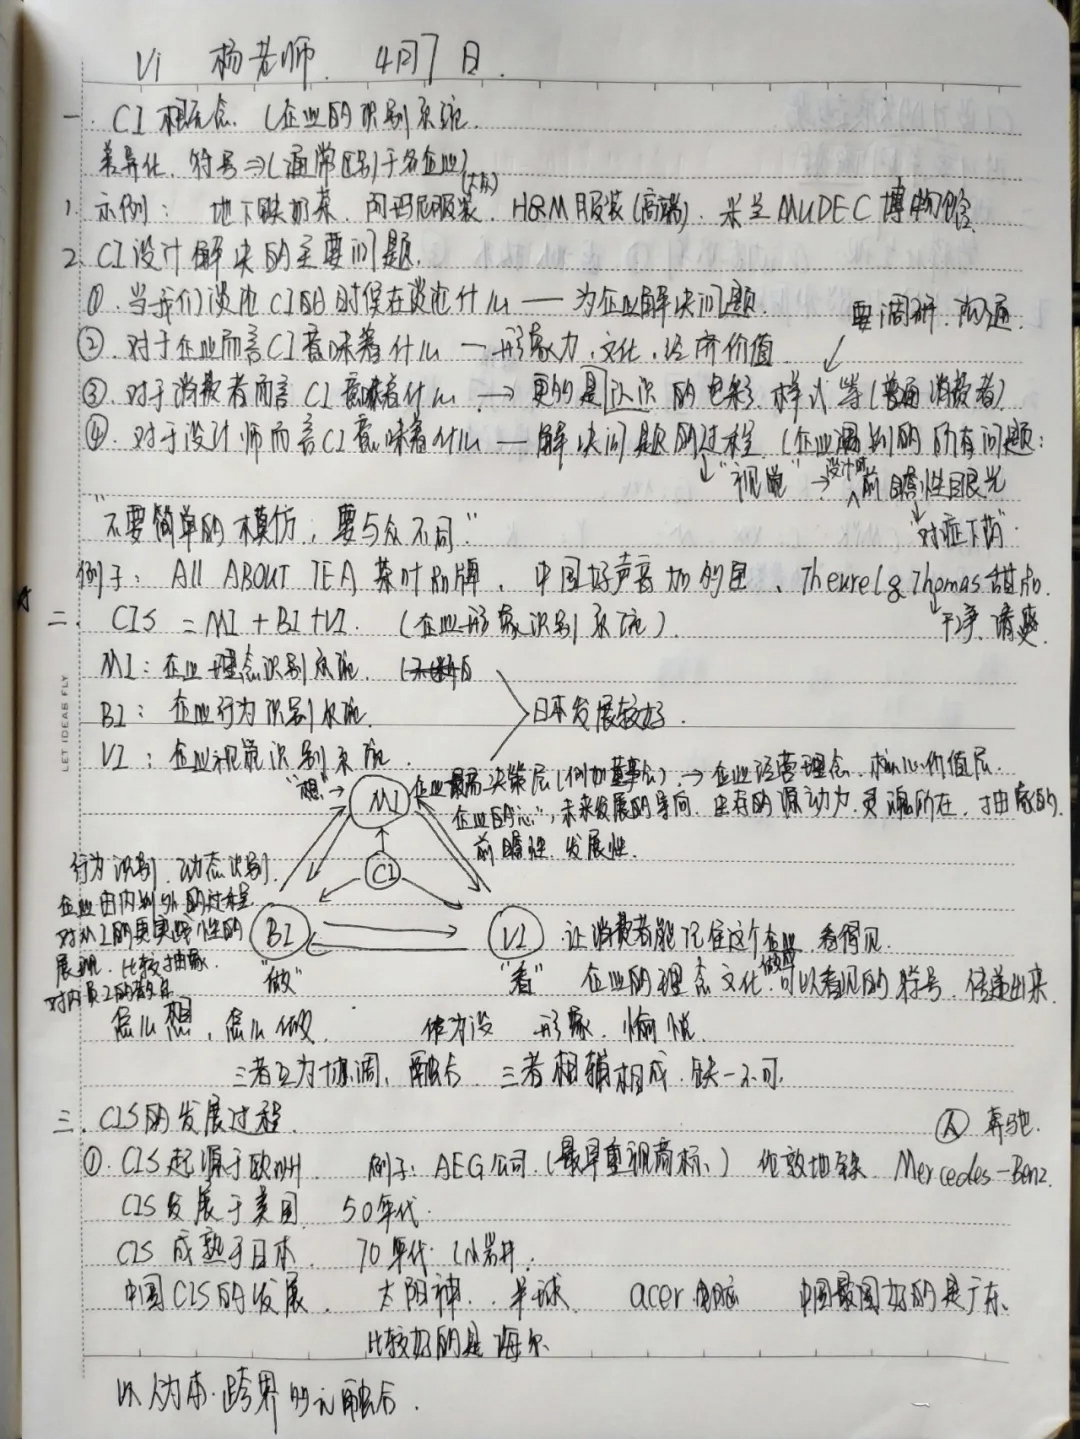 Vi 杨老师. 4月7日.
一. CI概念. (企业的识别系统.
差异化. 符号⇒(通常区别于各企业)
1. 示例: 地下铁奶茶. 阿玛尼服装(大众). H&M服装(高端). 米兰MUDEC博物馆
2. CI设计解决的主要问题.
①. 当我们谈论CI的时候在谈论什么 — 为企业解决问题.
要调研. 沟通.
②. 对于企业而言CI意味着什么 — 形象力. 文化. 经济价值
③. 对于消费者而言CI意味着什么 → 更多的是认识的色彩. 样式等(普通消费者)
④. 对于设计师而言CI意味着什么 — 解决问题的过程. (企业遇到的所有问题:
↓"视觉" → 设计时前瞻性眼光
"不要简单的模仿, 要与众不同"
↓"对症下药"
例子: All ABOUT TEA 茶叶品牌. 中国好声音 Theurel & Thomas甜品.
↓干净. 清爽.
二. CIS = MI + BI + VI. (企业形象识别系统).
MI: 企业理念识别系统.
BI: 企业行为识别系统.
日本发展较好.
VI: 企业视觉识别系统.
"想" → MI 企业最高决策层(例如董事会) → 企业经营理念. 核心价值层.
"企业的心", 未来发展的导向. 生存的源动力. 灵魂所在. 抽象的.
前瞻性. 发展性.
CI
行为识别. 动态识别.
企业由内到外的过程
对员工的更实践性的
展现. 比较抽象.
对内员工的教育
BI
"做"
VI 让消费者能记住这个企业 看得见.
"看" 企业的理念文化做成可以看见的符号. 传递出来
怎么想, 怎么做 作为设 形象. 愉悦.
三者互为协调、融合 三者相辅相成. 缺一不可.
三. CIS的发展过程.
奔驰.
①. CIS起源于欧洲. 例子: AEG公司. (最早重视商标.) 伦敦地铁 Mercedes-Benz.
CIS发展于美国. 50年代.
CIS成熟于日本. 70年代.
中国CIS的发展. 太阳神. 半球. acer电脑 中国最好的是广东.
比较好的是海尔
以人为本. 跨界多元融合.